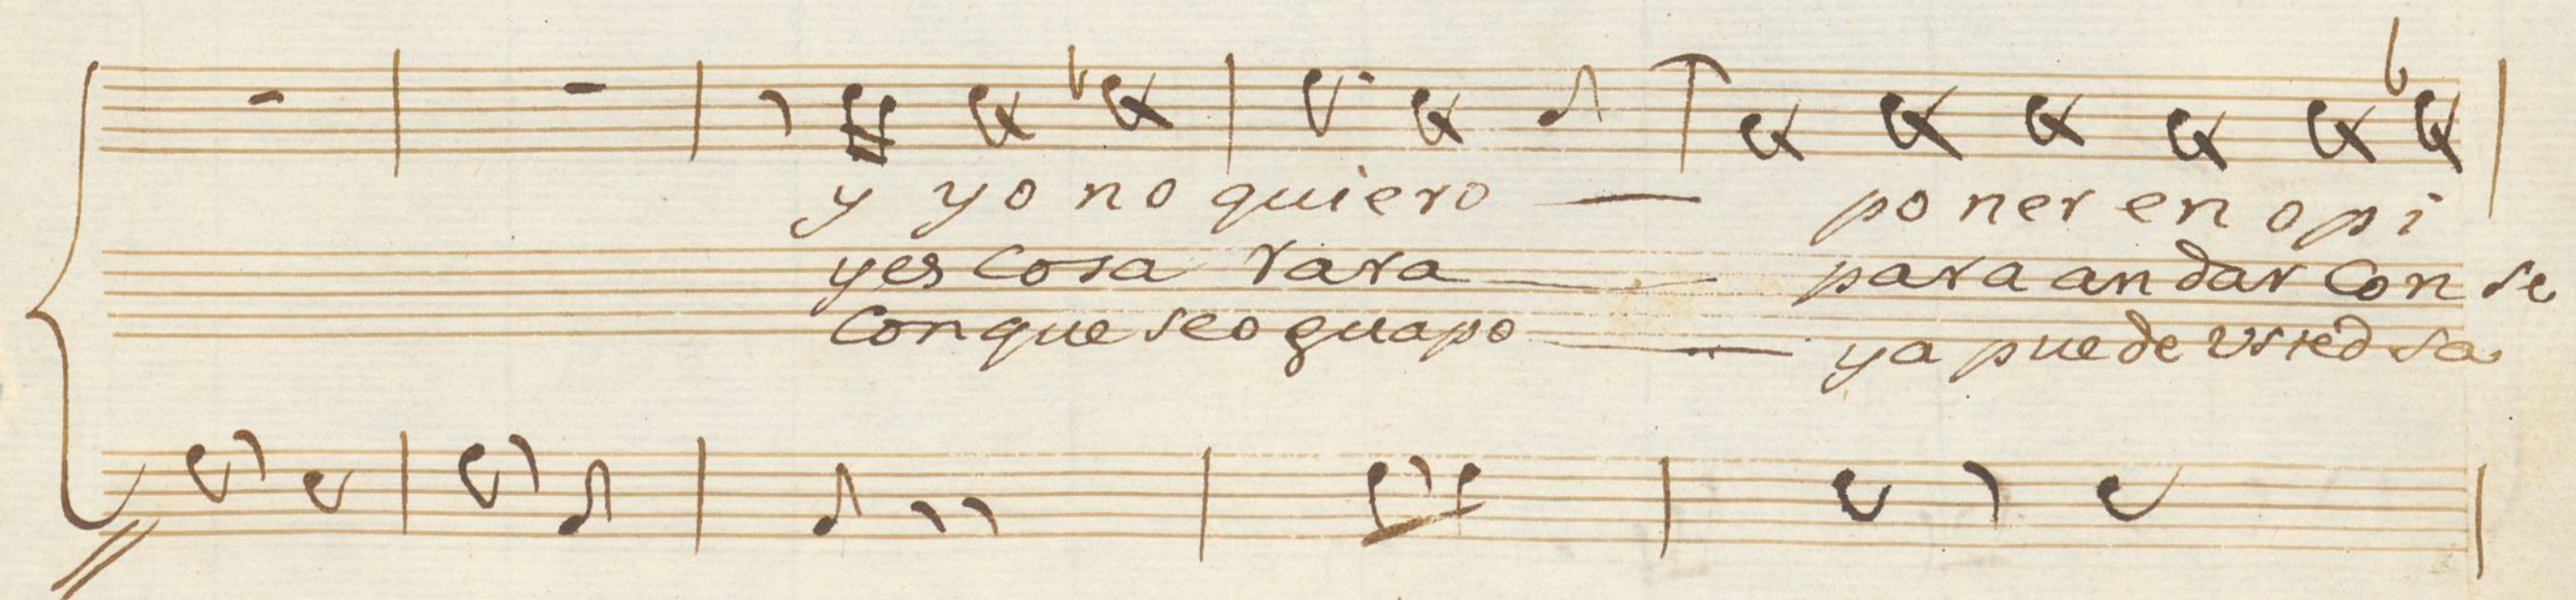 y yo no quiero — poner en opi
y es Cosa rara — para andar Con se
Con que seo guapo — ya puede usted sa